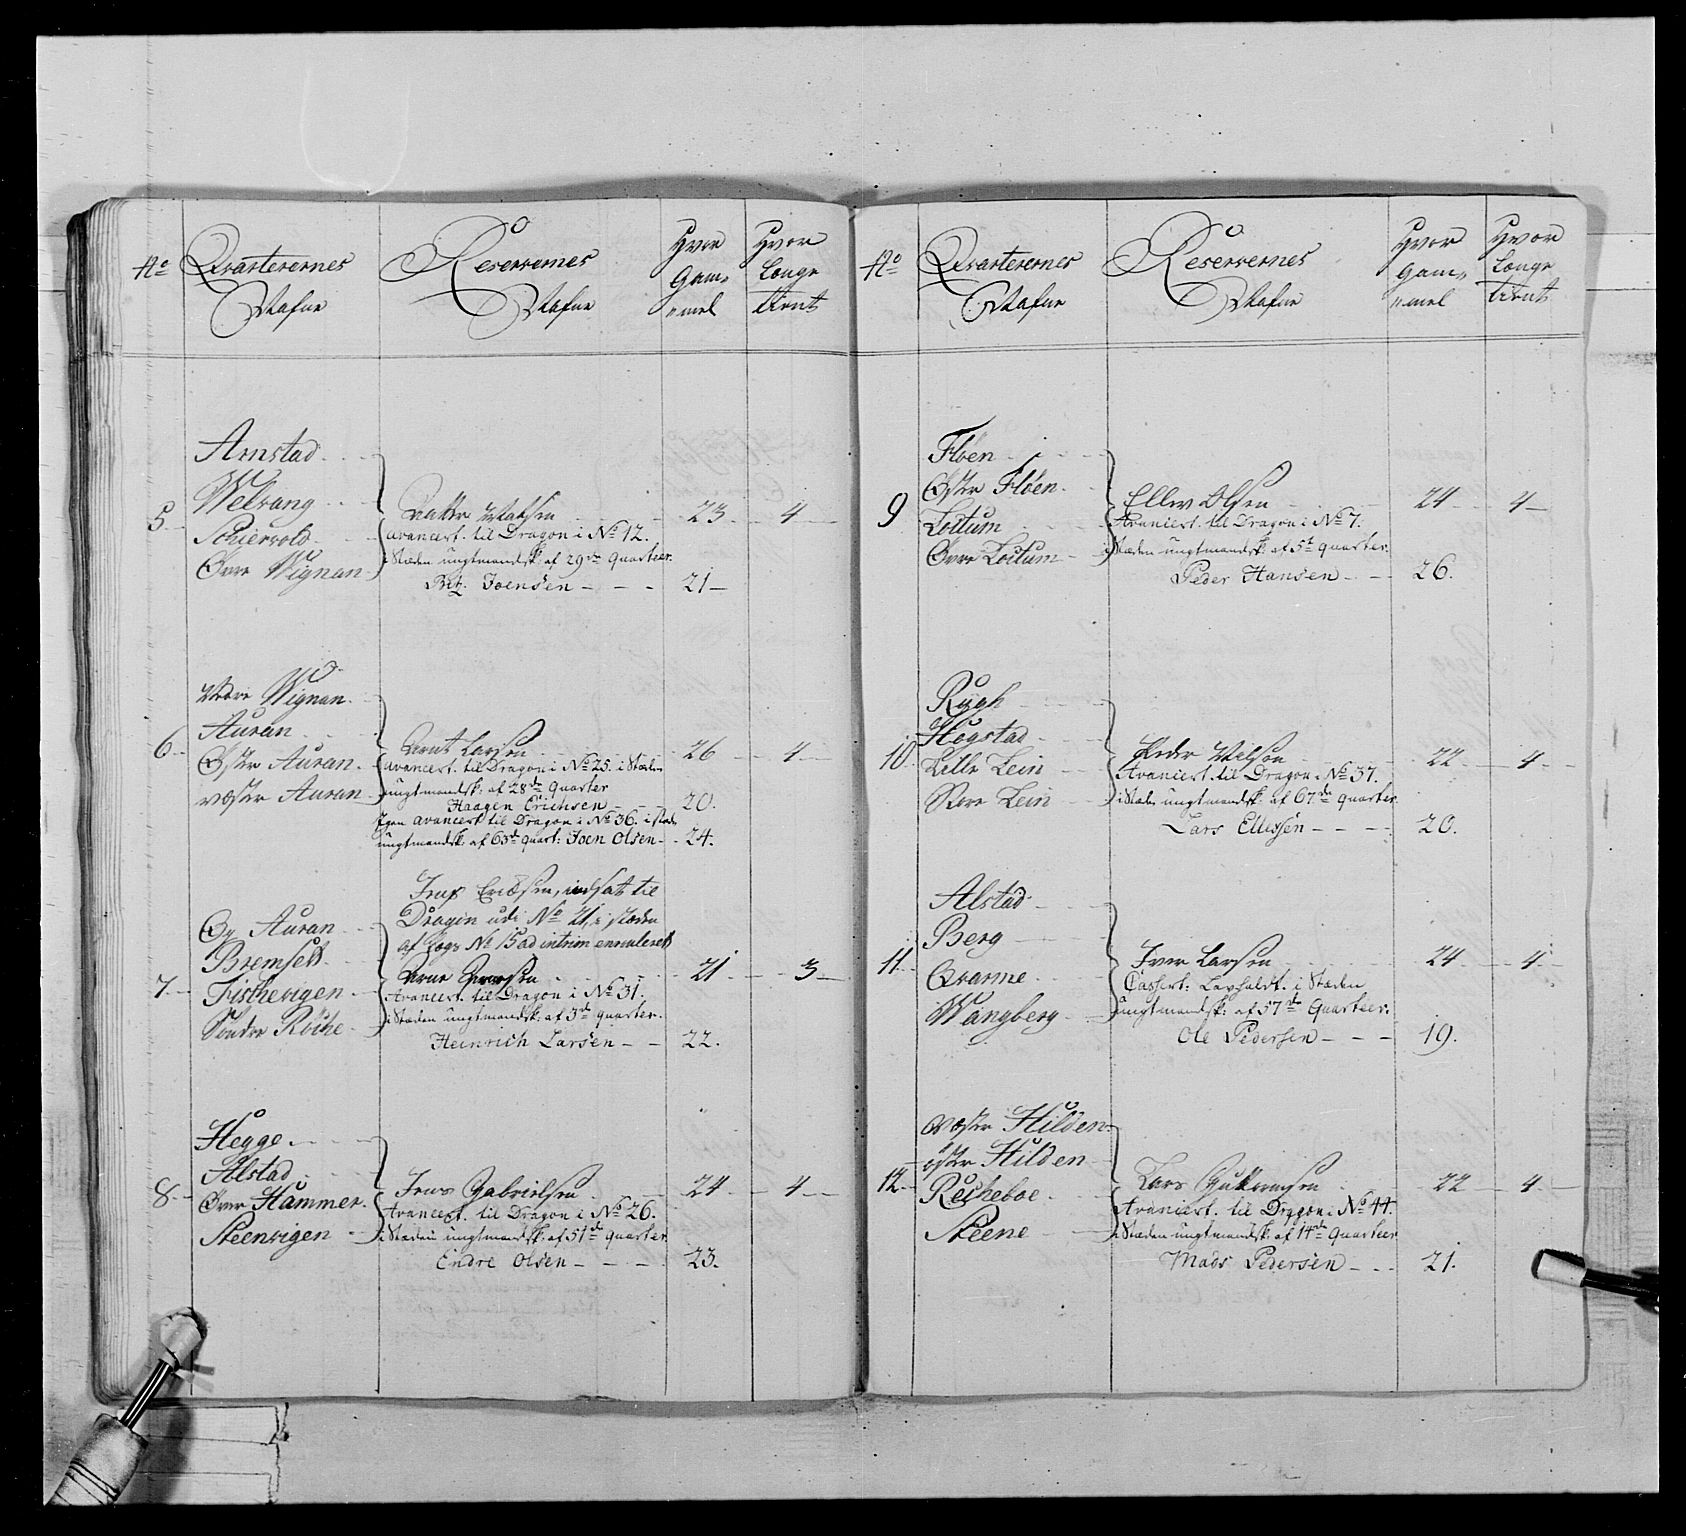 No Qvarterernes Nafne
Reservernes Nafne
Hvor Gam,,
,,mel
Hvor Længe tient
5.
Arnstad
Welvang
Schiervold
Øvre Wignan
23 4
avancert. til Dragon i No 12.
i Stæden ungtmandsk: af 29de Quarteer.
Joensen 21
6.
Nedre Wignan
Auran
Øster Auran
væster Auran
Arnt Larsen 26 4
avancert. til Dragon i No 25. i Stæden
ungtmandsk: af 28de Quarter
Haagen Erichsen 20.
Igen avancert til Dragon i No 36. i stæd
ungtmandsk: af 63de quart: Joen Olsen 24.
7.
Auran
Bremseth
Fischevigen
Søndre Rõche
Ericksen, indsat til
Dragon udi No 21, i stæden
af No 15 ad intrim
21 3
Avancert. til Dragon i No 31.
i Stæden ungtmandsk: af 3de quarter.
Heinrich Larsen 22.
8.
Hegge
Alstad
Øver Hammer
Steenvigen
Jens Gabrielsen 24 4
Avancert. til Dragon i No 26.
i Stæden ungtmandsk: af 51de quarter
Endre Olsen 23.
No Qvarterernes Nafne
Reservernes Nafne
Hvor Gam,,
,,mel
Hvor Længe tient
9
Fløen
Øster Fløen
Loctum
Øvre Loctum
Ellev Olsen 24 4
Avanciert. til Dragon i No 7.
i Stæden ungtmandsk: af 5t quarter.
Peder Hansen 26.
10.
Rygh
Høgstad
Lille Lein
Store Lein
Peder Nilsen 22 4
Avanciert. til Dragon i No 37.
i Stæden ungtmandsk: af 67de quarter
Lars Ellessen 20.
11.
Alstad
Berg
Qvarme
Wangberg
Iver Larsen 24 4
Cassert: i Stæden
ungtmandsk: af 57de Quarteer.
Ole Pedersen 19.
12.
væster Hilden
øster Hilden
Reicheboe
Steene
Lars Guttormsen 22 4
Avanciert. til Dragon i No 44.
i Stæden ungtmandsk: af 14de Quarteer
Mads Pedersen 21.